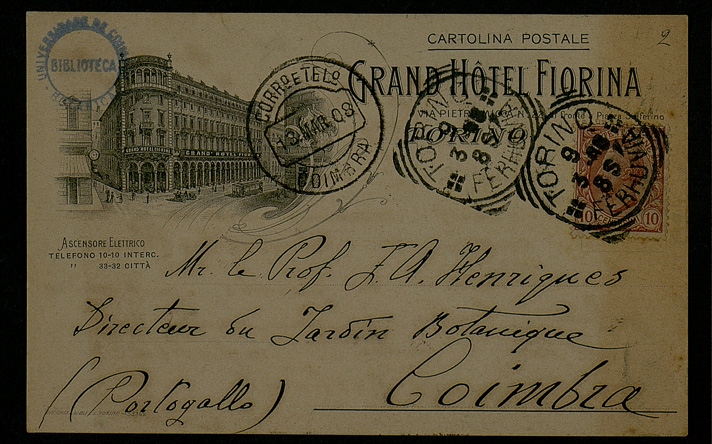 CARTOLINA POSTALE
2
GRAND HÔTEL FIORINA
VIA PIETRO MICCA N. 22
TORINO
UNIVERSIDADE DE COIMBRA
BIBLIOTECA
BOTANICA
CORRO E TELO
13 MAR 08
COIMBRA
TORINO
FERROVIA
TORINO
FERROVIA
10 10
GRAND HOTEL
ASCENSORE ELETTRICO
TELEFONO 10-10 INTERC.
" 33-32 CITTÀ
Mr. le Prof. J. A. Henriques
Directeur du Jardin Botanique
(Portogallo) Coimbra